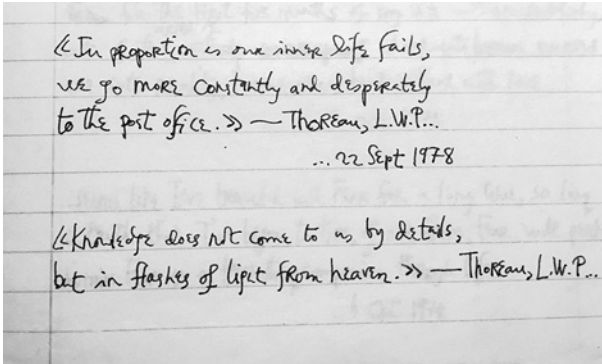 ≪In proportion as our inner life fails,
we go more constantly and desperately
to the post office.≫ — Thoreau, L.W.P...
...22 Sept 1978
≪Knowledge does not come to us by details,
but in flashes of light from heaven.≫ — Thoreau, L.W.P...